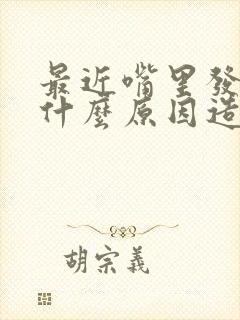 最近嘴里發
什麼原因造
胡宗義